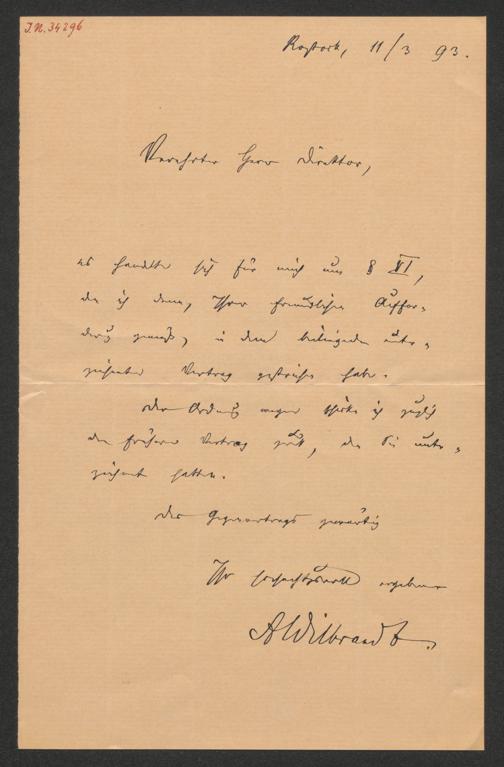 I.N. 34296
Rostock, 11/3 93.
Verehrter Herr Direktor,
es handelte sich für mich um § VI,
den ich denn, Ihrer freundlichen Auffor-
derung gemäß, in dem beiliegenden unter-
zeichneten Vertrag gestrichen habe.
Der Ordnung wegen schicke ich zugleich
den früheren Vertrag zurück, den Sie unter-
zeichnet hatten.
Des Gegenvertrags gewärtig
Ihr hochachtungsvoll ergebener
AWilbrandt.